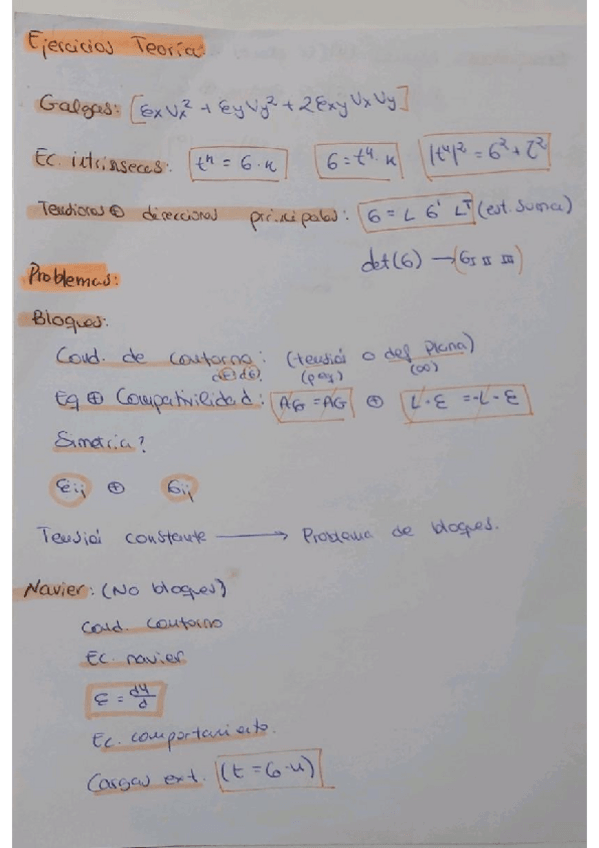 Ejercicios Teoría:
Galgas: [εx Vx² + εy Vy² + 2εxy Vx Vy]
Ec. intrínsecas: tⁿ = σ · n σ = tⁿ · n |tⁿ|² = σ² + τ²
Tensiones ⊕ direcciones principales: σ = L σ' Lᵀ (est. suma)
det(σ) → (σI II III)
Problemas:
Bloques:
Cond. de contorno: (tensión o def plana)
(peq) (∞)
Eq ⊕ Compativilidad: AG = AG ⊕ L · ε = -L · ε
Simetría?
εij ⊕ σij
Tensión constante → Problema de bloques.
Navier: (No bloques)
Cond. contorno
Ec. navier
ε = du/d
Ec. comportamiento.
Cargas ext. (t = σ · n)